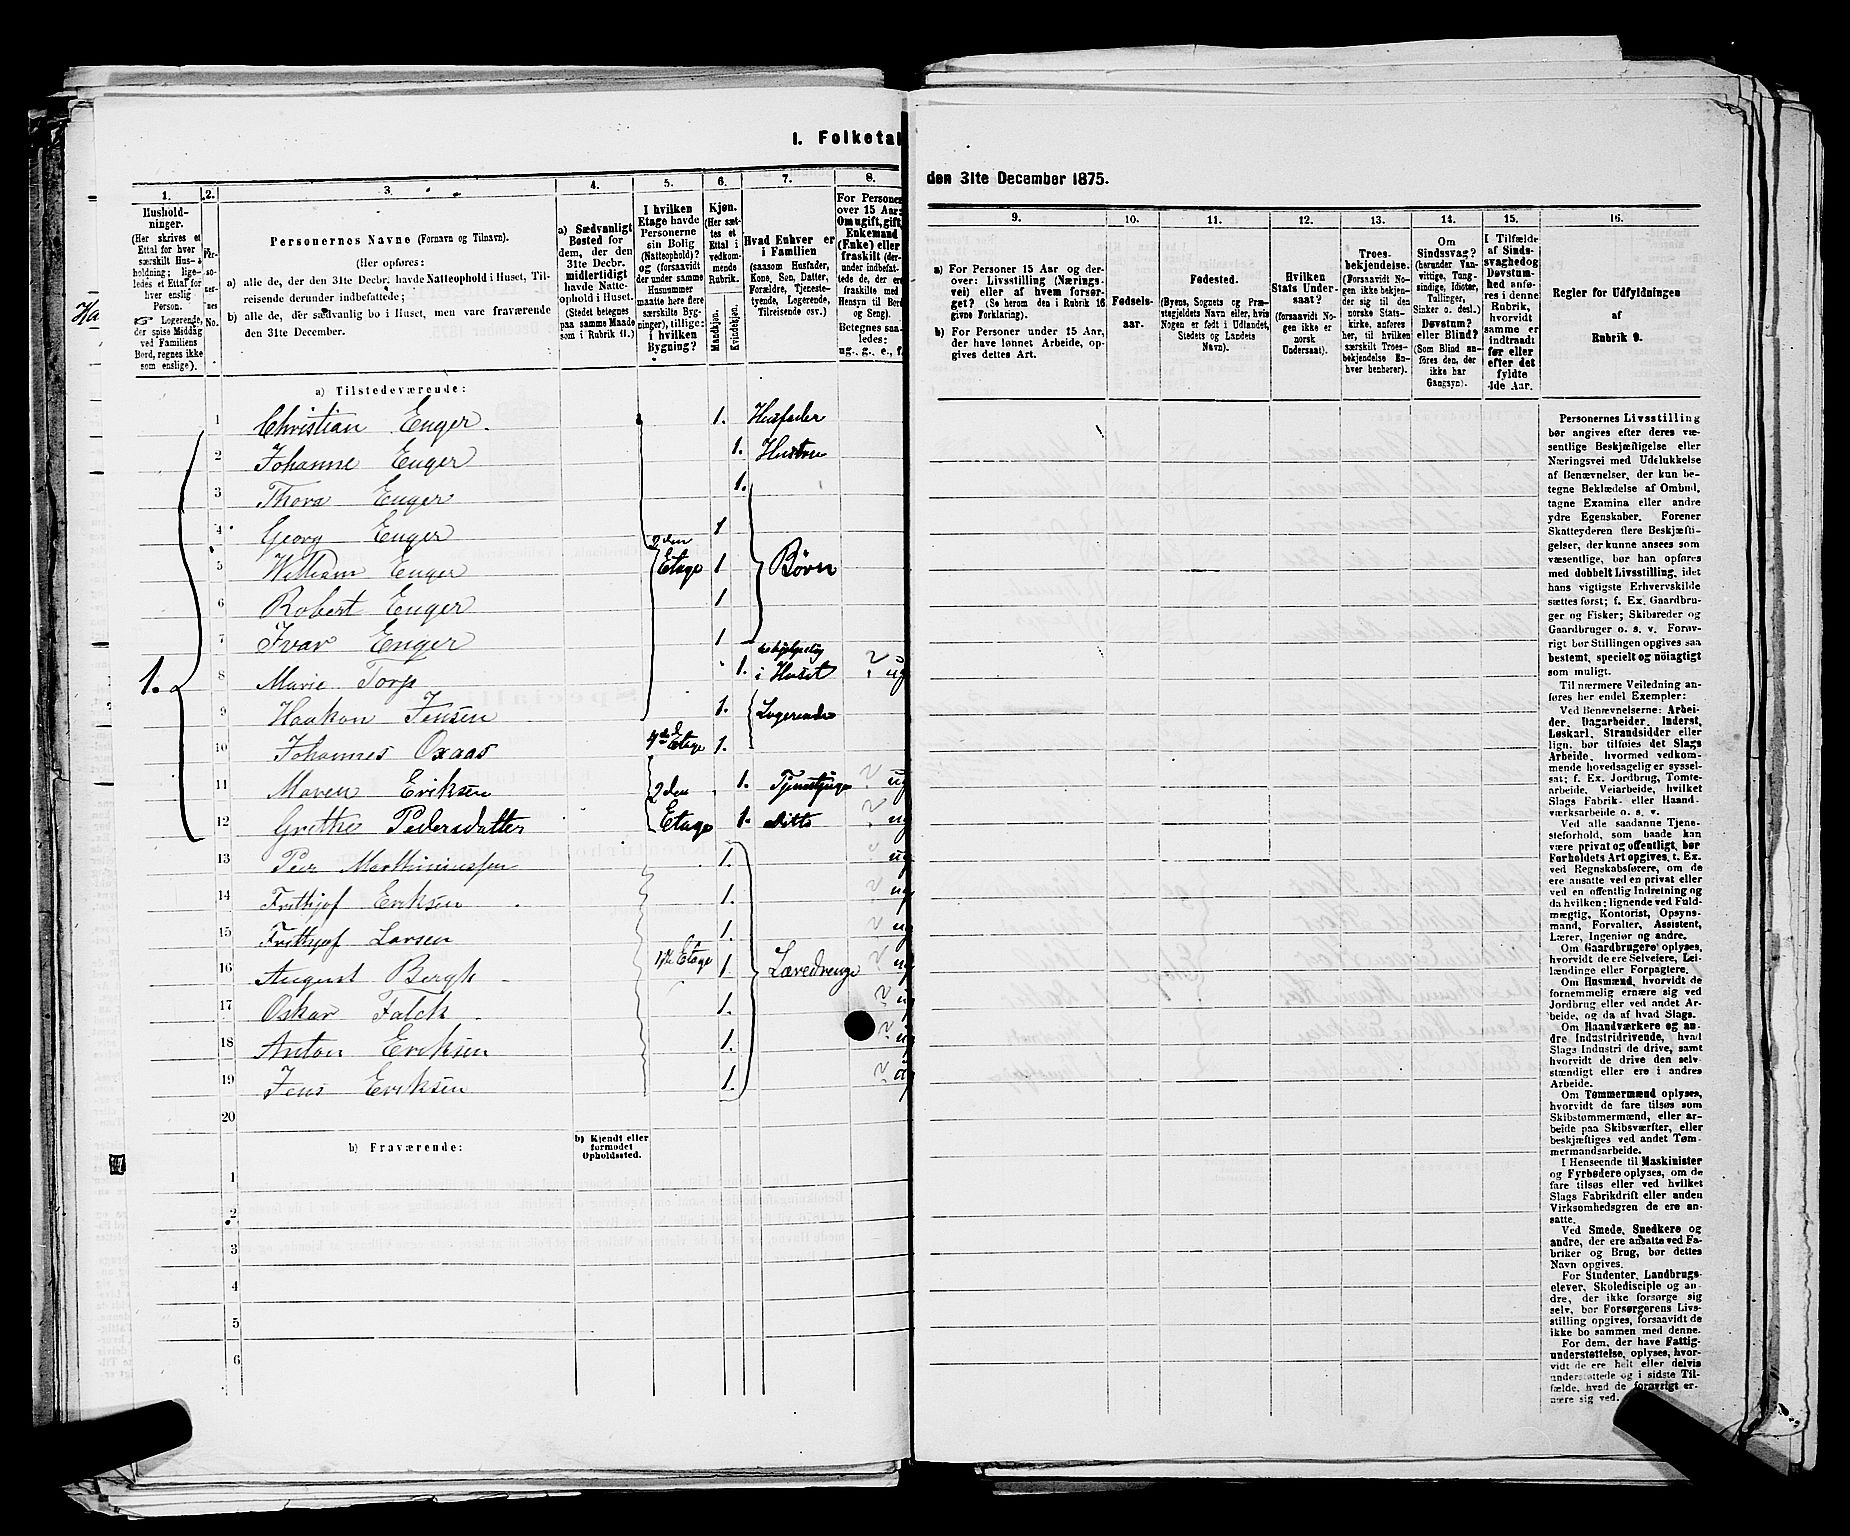 I. Folketal
den 31te December 1875.
1. 2. 3. 4. 5. 6. 7. 8.
Husholdninger.
(Her skrives et Ettal for hver særskilt Husholdning; ligeledes et Ettal for hver enslig Person.
Logerende, der spise Middag ved Familiens Bord, regnes ikke som enslige).
Personernes No.
Personernes Navne (Fornavn og Tilnavn).
(Her opføres:
a) alle de, der den 31te Decbr. havde Natteophold i Huset, Tilreisende derunder indbefattede;
b) alle de, der sædvanlig bo i Huset, men vare fraværende den 31te December.
a) Sædvanligt Bosted for dem, der den 31te Decbr. midlertidigt havde Natteophold i Huset. (Stedet betegnes paa samme Maade som i Rubrik 11.)
I hvilken Etage havde Personerne sin Bolig (Natteophold)? og (forsaavidt der under samme Husnummer maatte høre flere særskilte Bygninger), tillige: i hvilken Bygning?
Kjøn. (Her sættes et Ettal i vedkommende Rubrik.
Mandkjøn. Kvindekjøn.
Hvad Enhver er i Familien
(saasom Husfader, Kone, Søn, Datter, Forældre, Tjenestetyende, Logerende, Tilreisende osv.)
For Persone over 15 Aar: Om ugift, gift, Enkemand (Enke) eller fraskilt (derunder indbefattede de, der ere fraskilte med Hensyn til Bord og Seng).
Betegnes saaledes: ug., g., e., f.
a) Tilstedeværende:
1 Christian Enger 1. Husfader
2 Johanne Enger 1. Hustru
3 Thora Enger 1.
4 Georg Enger 1
5 William Enger 2den Etage 1 Børn
6 Robert Enger 1
7 Ivar Enger 1
1. 8 Marie Torp 1. i Huset ug
9 Haakon Jensen 1. Logerende
10 Johannes Oxaas 4de Etage 1.
11 Maren Eriksen 2den 1. ug
12 Grethe Pedersdatter Etage 1. ditto ug
13 Per Marthiniussen 1. ug
14 Frithjof Eriksen 1. ug
15 Frithjof Larsen 1. ug
16 August Bergh 1ste Etage 1. Læredrenge ug
17 Oskar Falck 1. ug
18 Anton Eriksen 1. ug
19 Jens Eriksen 1. ug
20
b) Fraværende:
b) Kjendt eller formodet Opholdssted.
1
2
3
4
5
6
9. 10. 11. 12. 13. 14. 15. 16.
a) For Personer 15 Aar og derover: Livsstilling (Næringsvei) eller af hvem forsørget? (Se herom den i Rubrik 16 givne Forklaring).
b) For Personer under 15 Aar, der have lønnet Arbeide, opgives dettes Art.
Fødselsaar.
Fødested.
(Byens, Sognets og Præstegjeldets Navn eller, hvis Nogen er født i Udlandet, Stedets og Landets Navn).
Hvilken Stats Undersaat?
(forsaavidt Nogen ikke er norsk Undersaat).
Troesbekjendelse.
(Forsaavidt Nogen ikke bekjender sig til den norske Statskirke, anføres her, til hvilken særskilt Troesbekjendelse Enhver henhører).
Om Sindssvag? (herunder Vanvittige, Tungsindige, Idioter, Tullinger, Sinker o. desl.) Døvstum? eller Blind? (Som Blind anføres den, der ikke har Gangsyn).
I Tilfælde af Sindssvaghed og Døvstumhed anføres i denne Rubrik, hvorvidt samme er indtraadt før eller efter det fyldte 4de Aar.
Regler for Udfyldningen
af
Rubrik 9.
Personernes Livsstilling
bør angives efter deres væ-
sentlige Beskjæftigelse eller
Næringsvei med Udelukkelse
af Benævnelser, der kun be-
tegne Beklædelse af Ombud,
tagne Examina eller andre
ydre Egenskaber. Forener
Skatteyderen flere Beskjæfti-
gelser, der kunne ansees som
væsentlige, bør han opføres
med dobbelt Livsstilling, idet
hans vigtigste Erhvervskilde
sættes først; f. Ex. Gaardbru-
ger og Fisker; Skibsreder og
Gaardbruger o. s. v. Forøv-
rigt bør Stillingen opgives saa
bestemt, specielt og nöiagtigt
som muligt.
Til nærmere Veiledning an-
føres her endel Exempler:
Ved Benævnelserne: Arbei-
der, Dagarbeider, Inderst,
Løskarl, Strandsidder eller
lign. bør tilføies det Slags
Arbeide, hvormed vedkom-
mende hovedsagelig er syssel-
sat; f. Ex. Jordbrug, Tomte-
arbeide, Veiarbeide, hvilket
Slags Fabrik- eller Haand-
værksarbeide o. s. v.
Ved alle saadanne Tjene-
steforhold, som baade kan
være privat og offentligt, bør
Forholdets Art opgives, t. Ex.
ved Regnskabsførere, om de
ere ansatte ved en privat eller
ved en offentlig Indretning og
da hvilken; lignende ved Fuld-
mægtig, Kontorist, Opsyns-
mand, Forvalter, Assistent,
Lærer, Ingeniør og andre.
Om Gaardbrugere oplyses,
hvorvidt de ere Selveiere, Lei-
lændinge eller Forpagtere.
Om Husmænd, hvorvidt de
fornemmelig ernære sig ved
Jordbrug eller ved andet Ar-
beide, og da af hvad Slags.
Om Haandværkere og an-
dre Industridrivende, hvad
Slags Industri de drive, samt
hvorvidt de drive den selv-
stændigt eller ere i andres
Arbeide.
Om Tømmermænd oplyses,
hvorvidt de fare tilsøs som
Skibstømmermænd, eller ar-
beide paa Skibsværfter, eller
beskjæftiges ved andet Tøm-
mermandsarbeide.
I Henseende til Maskinister
og Fyrbødere oplyses, om de
fare tilsøs eller ved hvilket
Slags Fabrikdrift eller anden
Virksomhedsgren de ere an-
satte.
Ved Smede, Snedkere og
andre, der ere ansatte ved Fa-
briker og Brug, bør dettes
Navn opgives.
For Studenter, Landbrugs-
elever, Skoledisciple og an-
dre, der ikke forsørge sig
selv, bør Forsørgerens Livs-
stilling opgives, forsaavidt de
ikke bo sammen med denne.
For dem, der have Fattig-
understøttelse, oplyses, hvor-
vidt de ere helt eller delvis
understøttede og i sidste Til-
fælde, hvad de forøvrigt er-
nære sig ved.